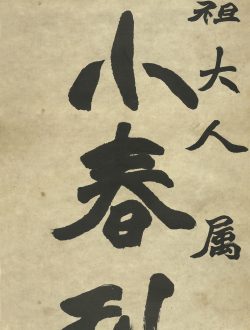 祖大人 属
小春